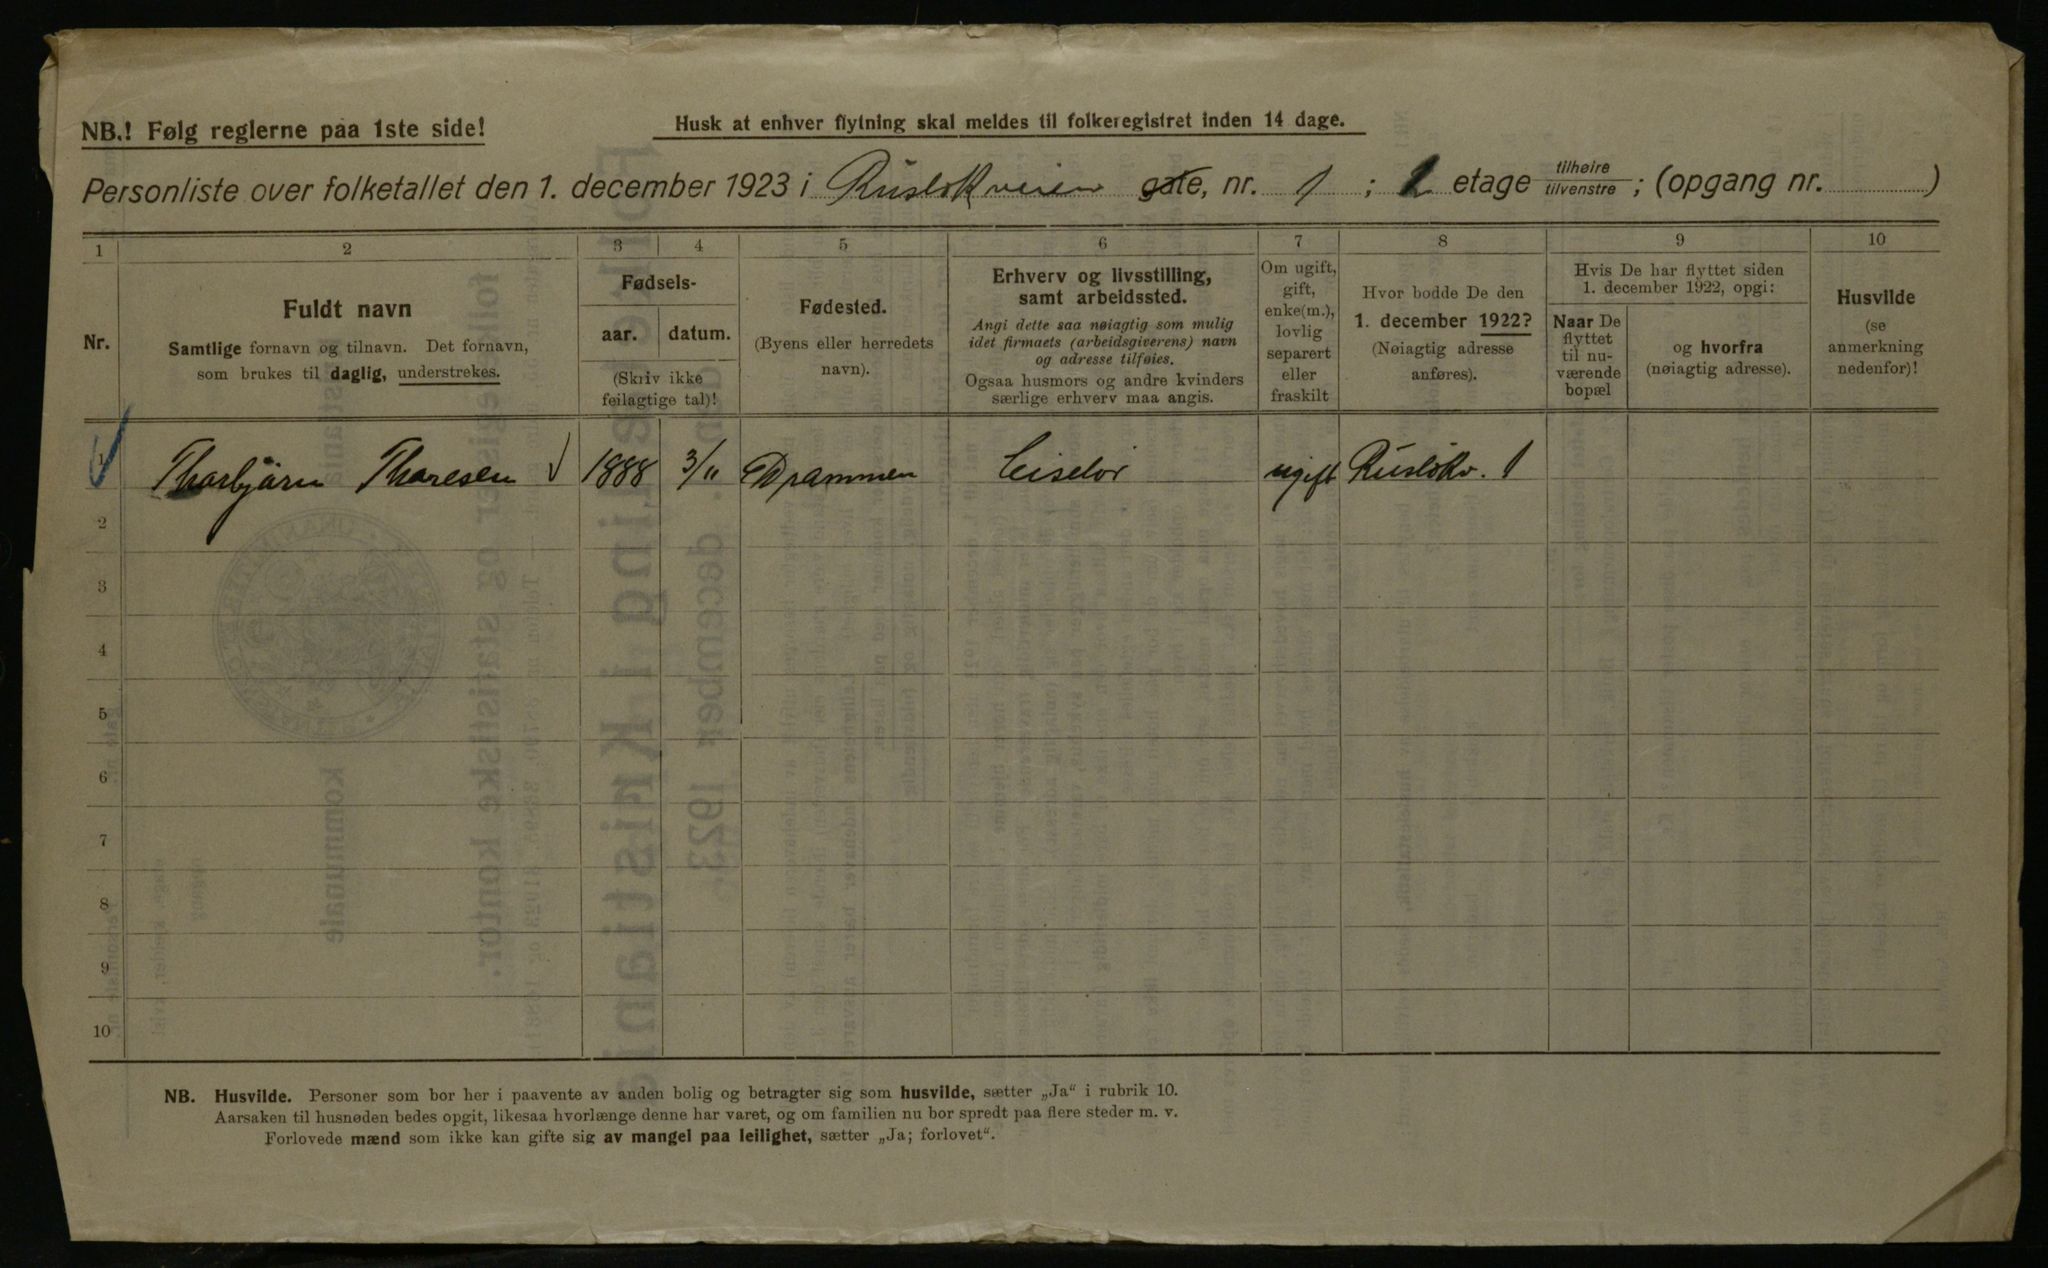 NB.! Følg reglerne paa 1ste side!
Husk at enhver flytning skal meldes til folkeregistret inden 14 dage.
Personliste over folketallet den 1. december 1923 i Rusløkveien gate, nr. 1 ; 2 etage tilhøire tilvenstre ; (opgang nr. )
1 2 3 4 5 6 7 8 9 10
Nr.
Fuldt navn
Samtlige fornavn og tilnavn. Det fornavn,
som brukes til daglig, understrekes.
Fødsels-
aar. datum.
(Skriv ikke
feilagtige tal)!
Fødested.
(Byens eller herredets
navn).
Erhverv og livsstilling,
samt arbeidssted.
Angi dette saa nøiagtig som mulig
idet firmaets (arbeidsgiverens) navn
og adresse tilføies.
Ogsaa husmors og andre kvinders
særlige erhverv maa angis.
Om ugift,
gift,
enke(m.),
lovlig
separert
eller
fraskilt
Hvor bodde De den
1. december 1922?
(Nøiagtig adresse
anføres).
Hvis De har flyttet siden
1. december 1922, opgi:
Naar De
flyttet
til nu-
værende
bopæl
og hvorfra
(nøiagtig adresse).
Husvilde
(se
anmerkning
nedenfor)!
1 Thorbjørn Thoresen 1888 3/11 Drammen Ciselør ugift Rusløkv. 1
2
3
4
5
6
7
8
9
10
NB. Husvilde. Personer som bor her i paavente av anden bolig og betragter sig som husvilde, sætter „Ja" i rubrik 10.
Aarsaken til husnøden bedes opgit, likesaa hvorlænge denne har varet, og om familien nu bor spredt paa flere steder m. v.
Forlovede mænd som ikke kan gifte sig av mangel paa leilighet, sætter „Ja; forlovet".